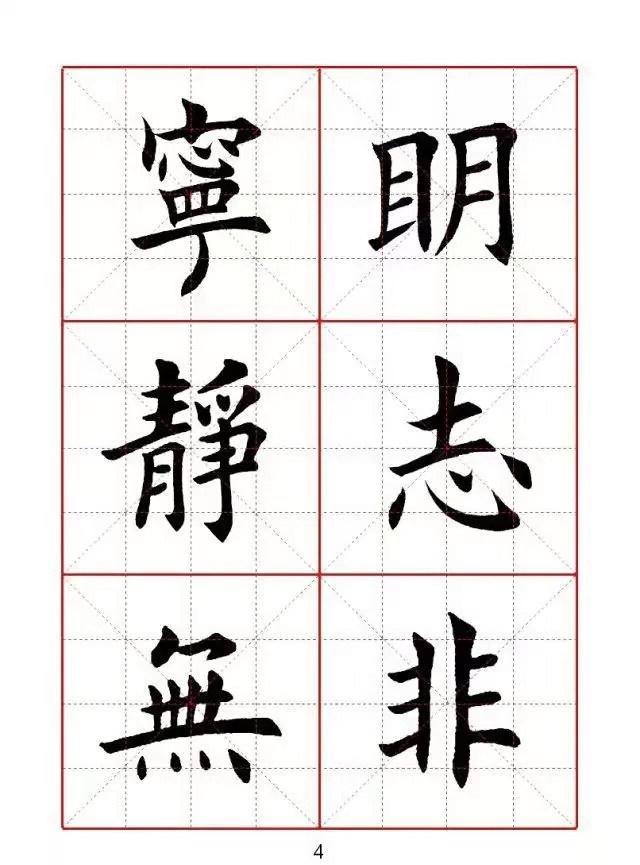 眀志非
寧靜無
4